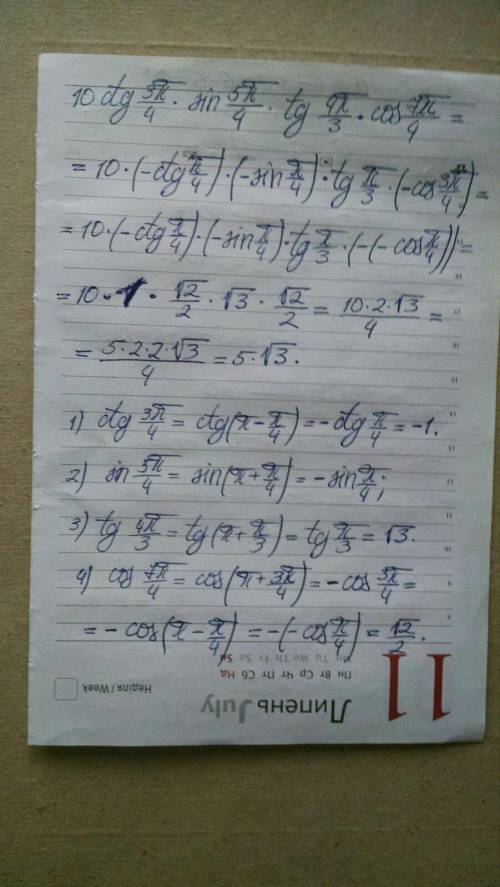 10·ctg 3π/4 · sin 5π/4 · tg 4π/3 · cos 7π/4 =
= 10·(-ctg π/4)·(-sin π/4)·tg π/3·(-cos 3π/4) =
= 10·(-ctg π/4)·(-sin π/4)·tg π/3·(-(-cos π/4)) =
= 10·1·√2/2·√3·√2/2 = 10·2·√3/4 =
= 5·2·2·√3/4 = 5·√3.
1) ctg 3π/4 = ctg(π-π/4) = -ctg π/4 = -1.
2) sin 5π/4 = sin(π+π/4) = -sin π/4;
3) tg 4π/3 = tg(π+π/3) = tg π/3 = √3.
4) cos 7π/4 = cos(π+3π/4) = -cos 3π/4 =
= -cos(π-π/4) = -(-cos π/4) = √2/2.
11
Липень July
Пн Вт Ср Чт Пт Сб Нд
Mn Tu We Th Fr Sa Su
Неділя / Week